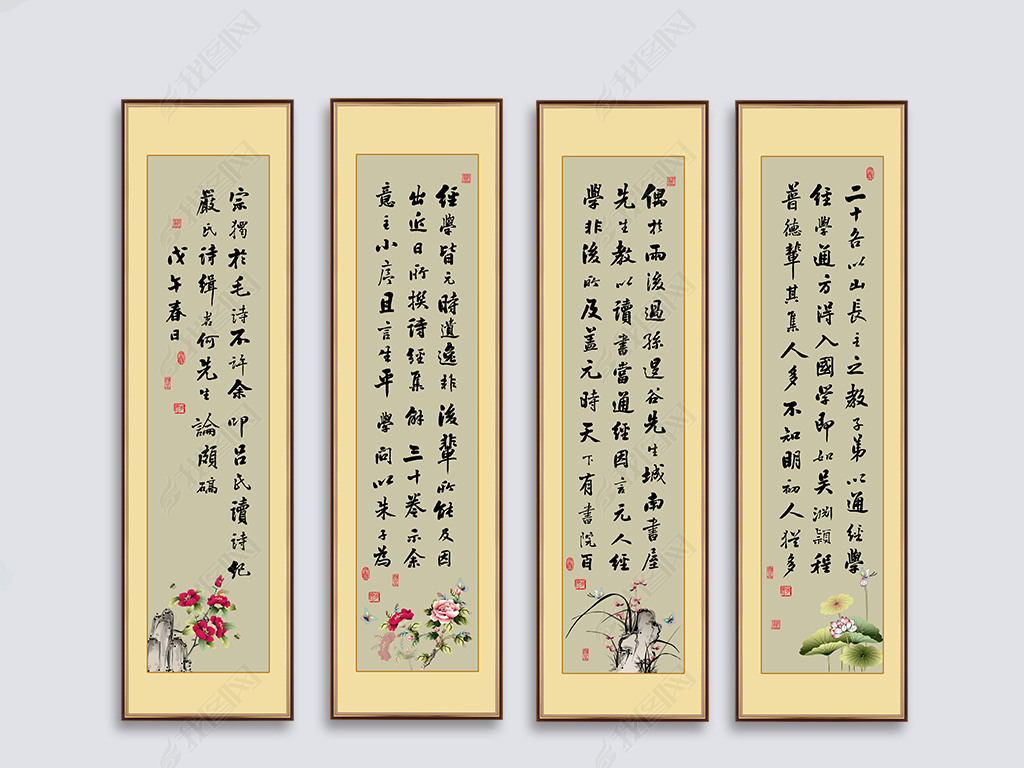 二十各以山長主之教子弟以通經學
經學通方得入國學即如吳淵穎程
普德輩其集人多不知明初人猶多
偶於雨後過孫退谷先生城南書屋
先生教以讀書當通經因言元人經
學非後所及蓋元時天下有書院百
經學皆元時遺逸非後輩所能及因
出近日所撰詩經集解三十卷示余
意主小序且言生平學問以朱子為
宗獨於毛詩不許余叩呂氏讀詩紀
嚴氏詩緝若何先生論頗確
戊午春日